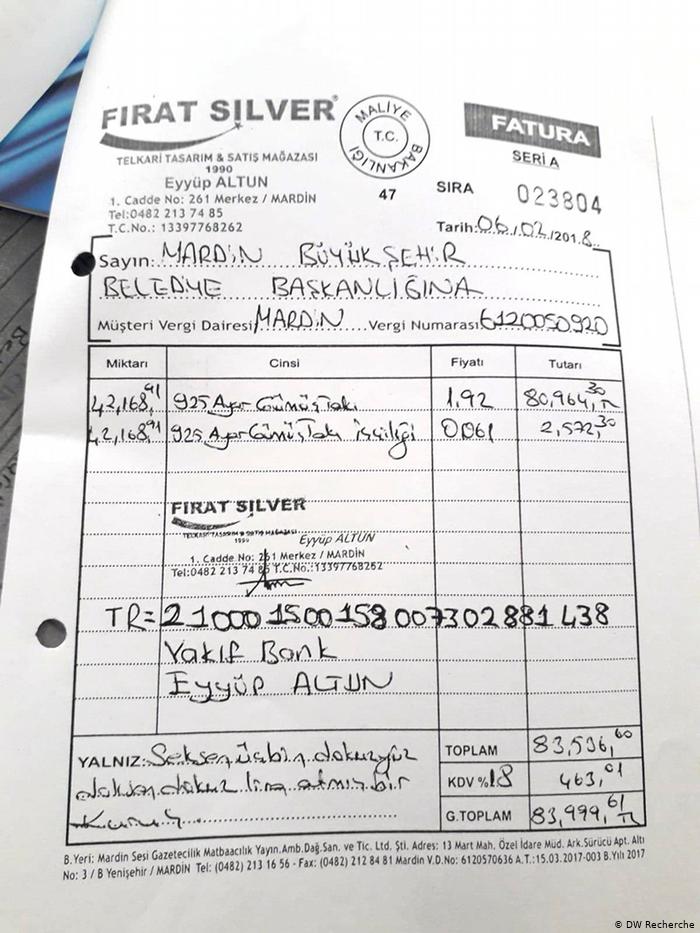 FIRAT SILVER®
TELKARİ TASARIM & SATIŞ MAĞAZASI
1990
Eyyüp ALTUN
1. Cadde No: 261 Merkez / MARDİN
Tel:0482 213 74 85
T.C.No.: 13397768262
MALİYE
T.C.
BAKANLIĞI
47
FATURA
SERİ A
SIRA 023804
Tarih:06/02/2018
Sayın: MARDİN BÜYÜKŞEHİR
BELEDİYE BAŞKANLIĞINA
Müşteri Vergi Dairesi MARDİN Vergi Numarası 6120050920
Miktarı Cinsi Fiyatı Tutarı
42,168,91 925 Ayar Gümüş Takı 1,92 80,964,30 TL
42,168,91 925 Ayar Gümüş Takı İşçiliği 0,061 2,572,30
FIRAT SILVER
TELKARİ TASARIM & SATIŞ MAĞAZASI
1990
Eyyüp ALTUN
1. Cadde No: 261 Merkez / MARDİN
Tel:0482 213 74 85 T.C.No.:13397768262
TR=210001500158007302881438
Vakıf Bank
Eyyüp ALTUN
YALNIZ: Seksenüçbin dokuzyüz
doksan dokuz lira atmış bir
Kuruş
TOPLAM 83,536,60
KDV %18 463,01
G.TOPLAM 83,999,61 TL
B.Yeri: Mardin Sesi Gazetecilik Matbaacılık Yayın.Amb.Dağ.San. ve Tic. Ltd. Şti. Adres: 13 Mart Mah. Özel İdare Müd. Ark.Sürücü Apt. Altı
No: 3 / B Yenişehir / MARDİN Tel: (0482) 213 16 56 - Fax: (0482) 212 84 81 Mardin V.D.No: 6120570636 A.T.:15.03.2017-003 B.Yılı 2017
© DW Recherche